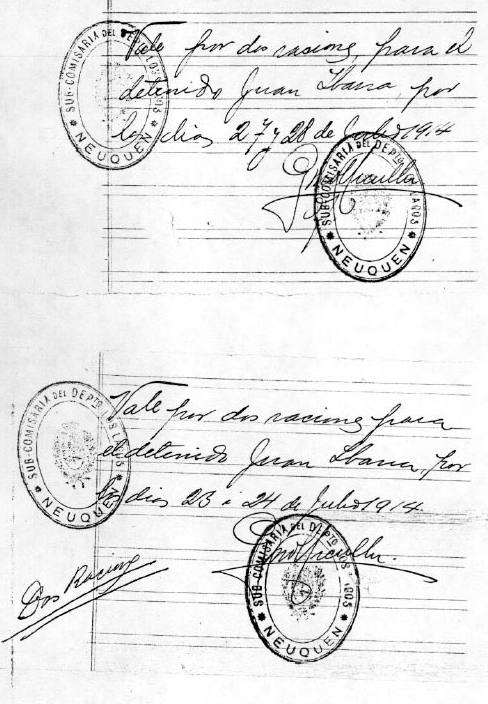 Vale por dos raciones para el
detenido Juan Ibarra, por
los dias 27 y 28 de Julio 1914
SUB-COMISARIA DEL DEPTO LOS LAGOS
NEUQUEN
SUB-COMISARIA DEL DEPTO LOS LAGOS
NEUQUEN
Vale por dos raciones para
el detenido Juan Ibarra, por
los dias 23 i 24 de Julio 1914.
SUB-COMISARIA DEL DEPTO LOS LAGOS
NEUQUEN
Dos Racions
SUB-COMISARIA DEL DEPTO LOS LAGOS
NEUQUEN